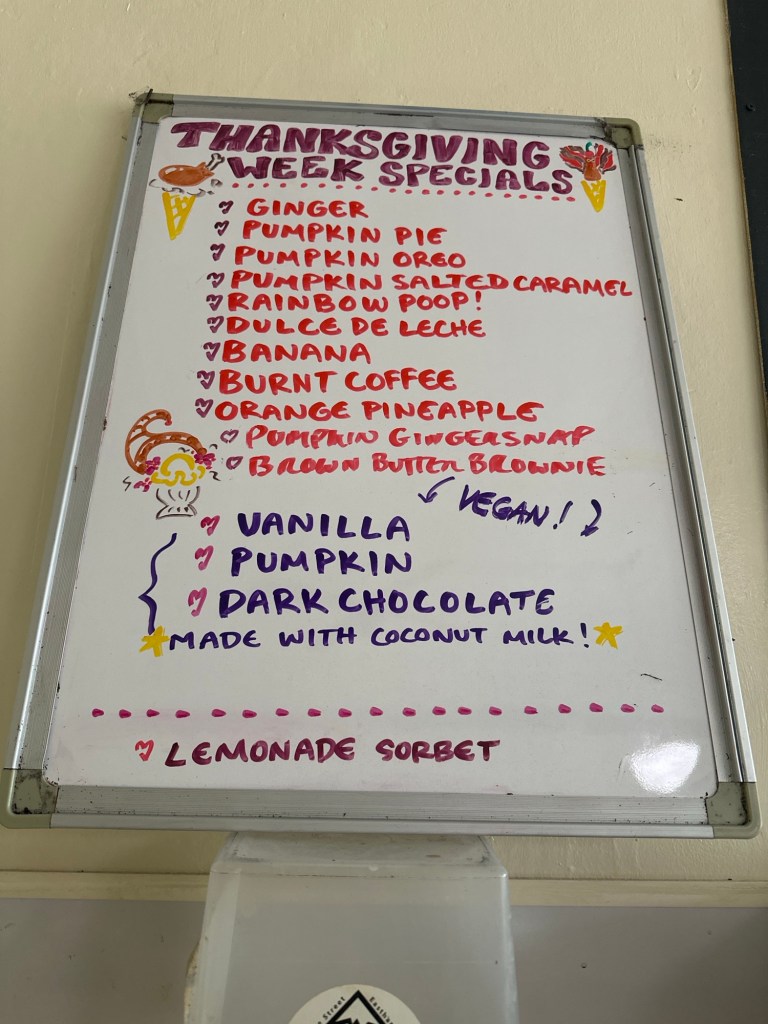 THANKSGIVING
WEEK SPECIALS
GINGER
PUMPKIN PIE
PUMPKIN OREO
PUMPKIN SALTED CARAMEL
RAINBOW POOP!
DULCE DE LECHE
BANANA
BURNT COFFEE
ORANGE PINEAPPLE
PUMPKIN GINGERSNAP
BROWN BUTTER BROWNIE
VEGAN!
VANILLA
PUMPKIN
DARK CHOCOLATE
MADE WITH COCONUT MILK!
LEMONADE SORBET
Street